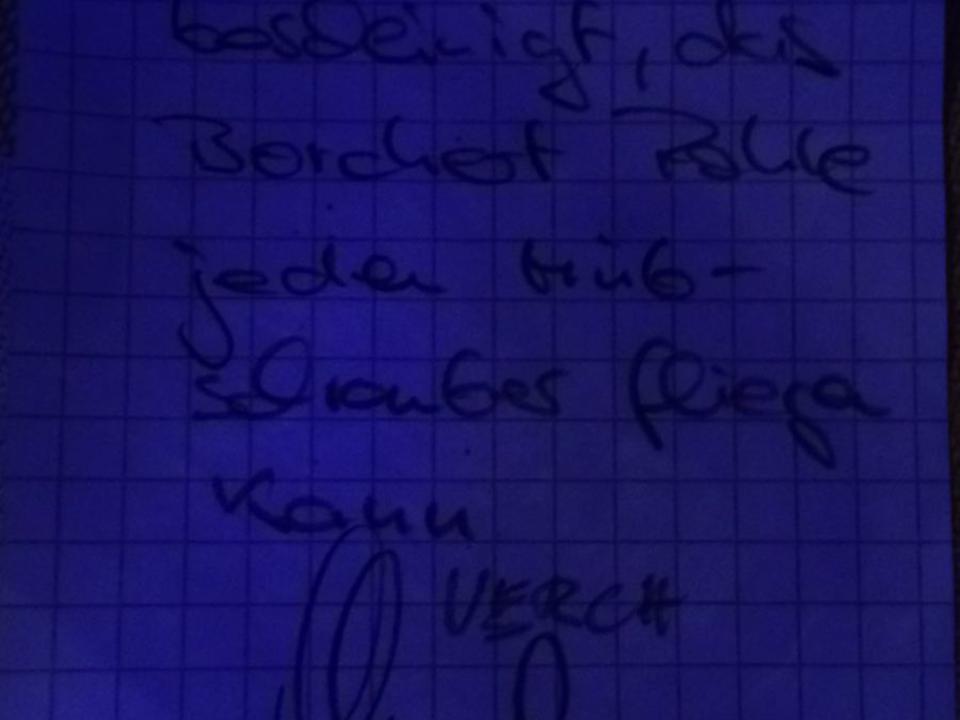 bescheinigt, daß
Borchert Pohle
jeden Hub-
schrauber fliegen
kann
VERCH